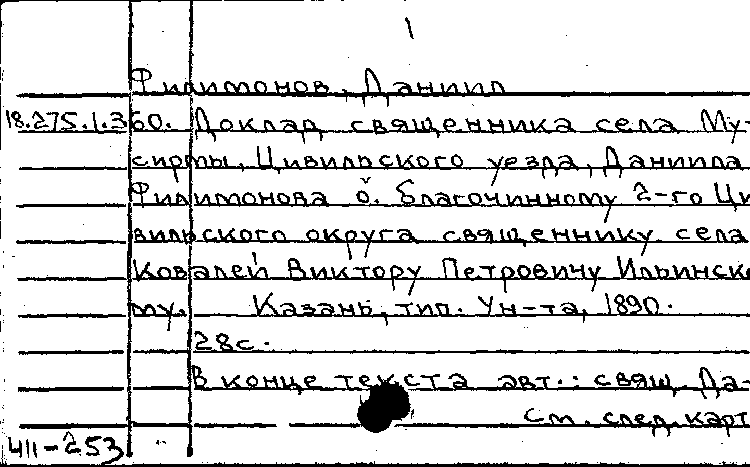 1
Филимонов, Даниил
18.275.1.360. Доклад священника села Му-
сирмы, Цивильского уезда, Даниила
Филимонова о. благочинному 2-го Ци
вильского округа священнику села
Ковалей Виктору Петровичу Ильинско
му. Казань, тип. Ун-та, 1890.
28с.
В конце текста авт.: свящ. Да-
См. след. карт
411-253